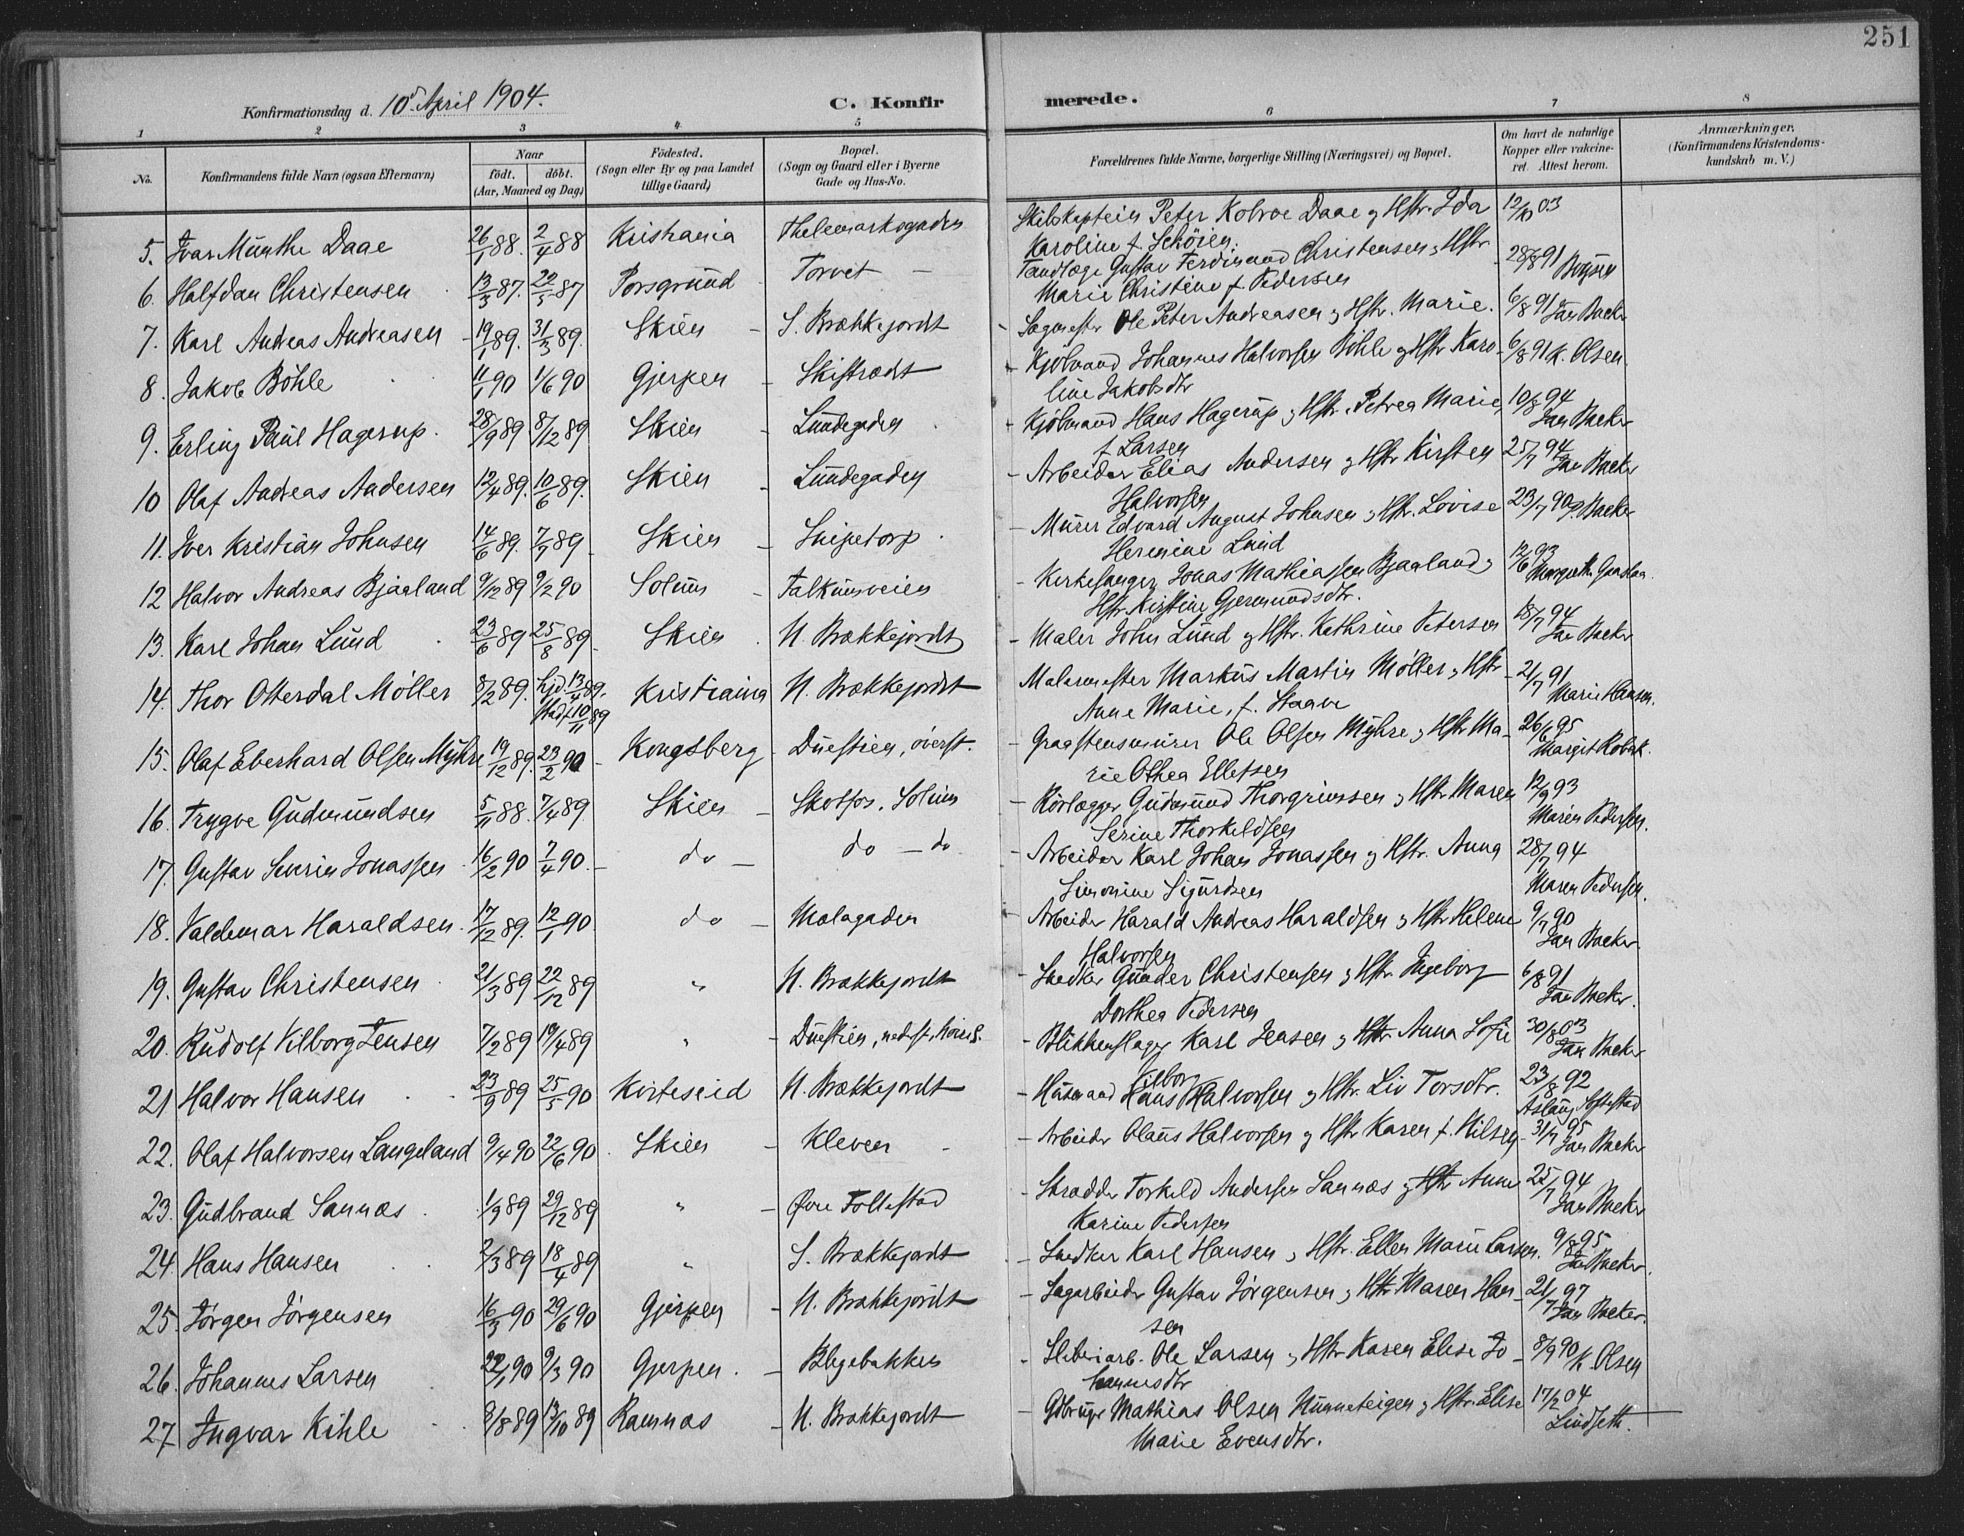 251
Konfirmationsdag d. 10d April 1904.
C. Konfirmerede.
1 2 3 4 5 6 7 8
No. Konfirmandens fulde Navn (ogsaa Efternavn) Naar födt. döbt. (Aar, Maaned og Dag) Födested. (Sogn eller By og paa Landet tillige Gaard) Bopæl. (Sogn og Gaard eller i Byerne Gade og Hus-No. Forældrenes fulde Navne, borgerlige Stilling (Næringsvei) og Bopæl. Om havt de naturlige Kopper eller vakcineret. Attest herom. Anmærkninger. (Konfirmandens Kristendomskundskab m. V.)
5. Ivar Munthe Daae 26/1 88. 2/4 88 Kristiania Thelemarksgaden Skibskaptein Peter Kobroe Daae og Hstr. Ida 12/10 03
Karoline f. Schöien.
6. Halfdan Christensen 13/3 87. 22/5 87 Porsgrund Torvet – Tandlæge Gustav Ferdinand Christensen og Hstr – 28/8 91
Marie Christine f. Pedersen
7. Karl Andreas Andreasen – 19/1 89. 31/3 89. Skien – S. Brækkejordt – Sagmester Ole Peter Andreasen og Hstr. Marie. 6/8 91 Jan Backer
8. Jakob Böhle 4/1 90 1/6 90 Gjerpen – Skistrædt – Kjöbmand Johannes Halvorsen Böhle og Hstr Karo– 6/8 91 K. Olsen
line Jakobsdtr
9. Erling Paul Hagerup. 28/9 89 8/12 89 Skien – Lundegaden – Kjöbmand Hans Hagerup og Hstr. Petrea Marie, 10/8 94 Jan Backer
f Larsen
10 Olaf Andreas Andersen 12/4 89. 10/6 89. Skien – Lundegaden – Arbeider Elias Andersen og Hstr Kirsten 25/7 94 Jan Backer
Halvorsen
11. Iver Kristian Johnsen 14/6 89. 7/7 89 Skien – Snipetorp. – Murer Edvard August Johnsen og Hstr. Lovise 23/7 90 J. Backer
Hermine Lund
12 Halvor Andreas Bjaaland 9/12 89 9/2 90 Solum – Falkumveien – Kirkesanger Jonas Mathiassen Bjaaland og 12/6 93
Hstr Kirstine Gjermundsdtr.
13. Karl Johan Lund 23/6 89 25/8 89. Skien N. Brækkejordt – Maler John Lund og Hstr. Kathrine Petersen 18/7 94 Jan Backer
14. Thor Otterdal Møller 8/2 89. hjd. 13/4 89. stadf 10/11 89 Kristiania N. Brækkejordt Malermester Markus Martin Møller og Hstr – 21/7 91 Marie Hansen.
Anne Marie, f. Staave
15. Olaf Eberhard Olsen Myhre 19/12 89. 23/2 90 – Kongsberg – Duestien, överst. – Graastensmurer Ole Olsen Myhre og Hstr Ma– 26/6 95
rie Othea Ellefsen
16. Trygve Gudmundsen 5/11 88. 7/4 89 Skien – Skotfos. Solum – Rörlægger Gudmund Thorgrimsen og Hstr Maren 12/9 93 Maren Pedersen.
Serine Thorkildsen
17. Gustav Severin Jonassen 16/2 90 7/4 90. – do – do – do. – Arbeider Karl Johan Jonassen og Hstr. Anna 28/7 94 Maren Pedersen.
Simonine Sigurdsen
18. Valdemar Haraldsen. 17/12 89. 12/1 90 do – Mælagaden Arbeider Harald Andreas Haraldsen og Hstr Helene 9/7 90 Jan Backer.
Halvorsen
19. Gustav Christensen 21/3 89 22/12 89 " N. Brækkejordt – Snedker Gunder Christensen og Hstr. Ingeborg 6/8 91 Jan Backer.
Dorthea Pedersen
20. Rudolf Vilborg Jensen 7/2 89 19/4 89 " – Duestien, nederst, – Blikkenslager Karl Jensen og Hstr Anna Sofie 30/8 03 Jan Backer
Vilborg
21 Halvor Hansen 23/9 89 25/5 90 Kviteseid N. Brækkejordt – Husmand Hans Halvorsen og Hstr. Liv Torsdtr. 23/8 92
22. Olaf Halvorsen Langeland 9/4 90 22/6 90. Skien – Kleven – Arbeider Olaus Halvorsen og Hstr Karen f. Nilsen – 31/7 95 Jan Backer
23. Gudbrand Sannæs 1/9 89 29/12 89 " – Övre Follestad – Skrædder Torkild Andersen Sannæs og Hstr Anne 25/7 94 Jan Backer
Karine Pedersen
24. Hans Hansen 2/3 89 18/4 89 " S. Brækkejordt – Snedker Karl Hansen og Hstr. Ellen Marie Larsen. 9/8 95 Jan Backer.
25. Jörgen Jörgensen 16/3 90 29/6 90 Gjerpen – N. Brækkejordt – Sagarbeider Gustav Jörgensen og Hstr Maren Han– 21/7 97 Jan Backer.
sen
26. Johannes Larsen 22/1 90 9/3 90 Gjerpen. – Blegebakken – Sliberiarb. Ole Larsen og Hstr Karen Elise Jo– 8/9 90 K. Olsen
hannesdtr
27. Ingvar Kihle 9/8 89 13/10 89 Ramnæs – N. Brækkejordt – Gdbruger Mathias Olsen Nunneteigen og Hstr. Elise 17/2 04 Lindseth.
Marie Evensdtr.